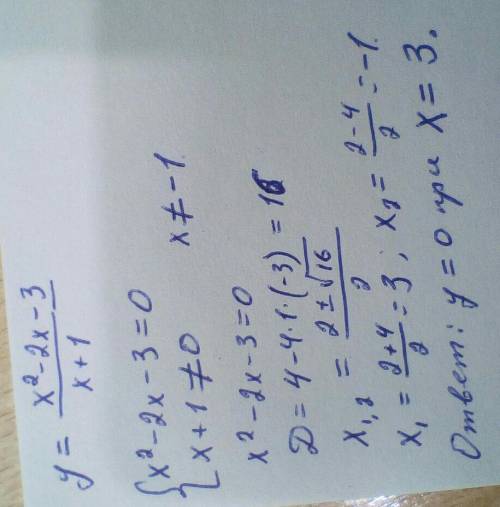 y = (x² - 2x - 3)/(x + 1)
{ x² - 2x - 3 = 0
x + 1 ≠ 0 x ≠ -1
x² - 2x - 3 = 0
D = 4 - 4·1·(-3) = 16
x₁,₂ = (2 ± √16)/2
x₁ = (2+4)/2 = 3; x₂ = (2-4)/2 = -1.
Ответ: y = 0 при x = 3.